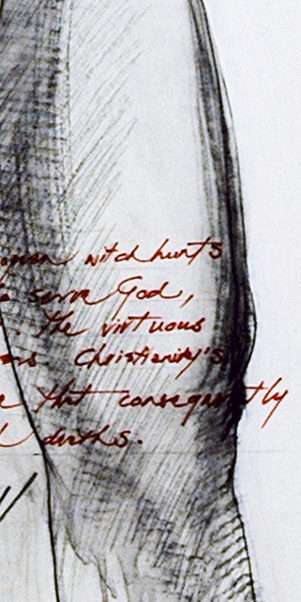 witch hunts
serve God,
. The virtuous
Christianity's
that consequently
deaths.